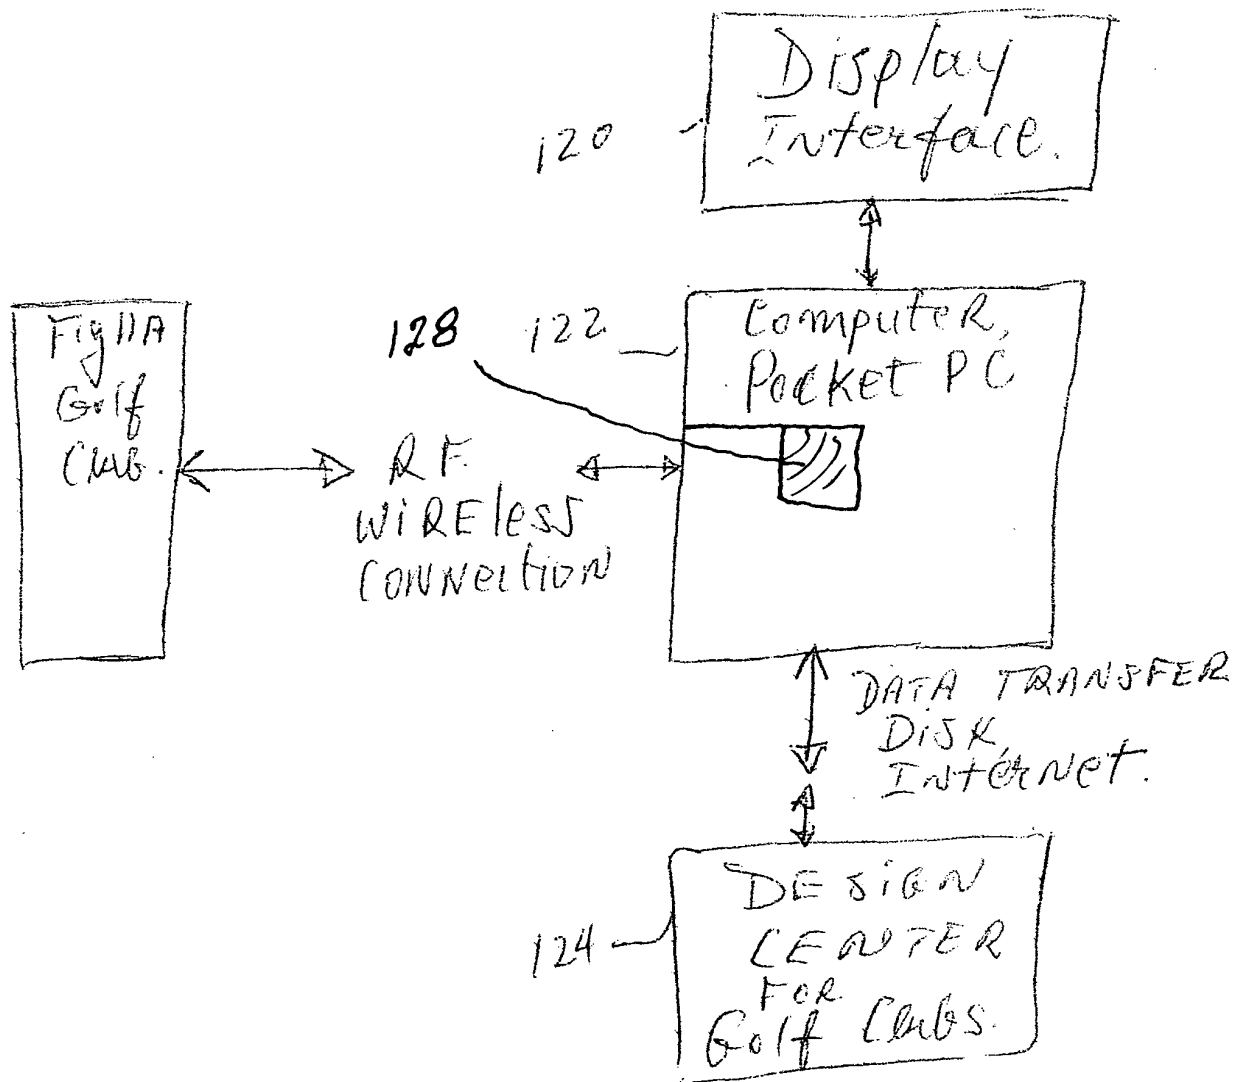 Display
Interface.
120
Fig 11A
Golf
Club.
128
122
Computer,
Pocket PC
R.F.
WIRElESS
CONNECTION
DATA TRANSFER
DISK,
INTERNET.
124
DESIGN
CENTER
FOR
Golf Clubs.